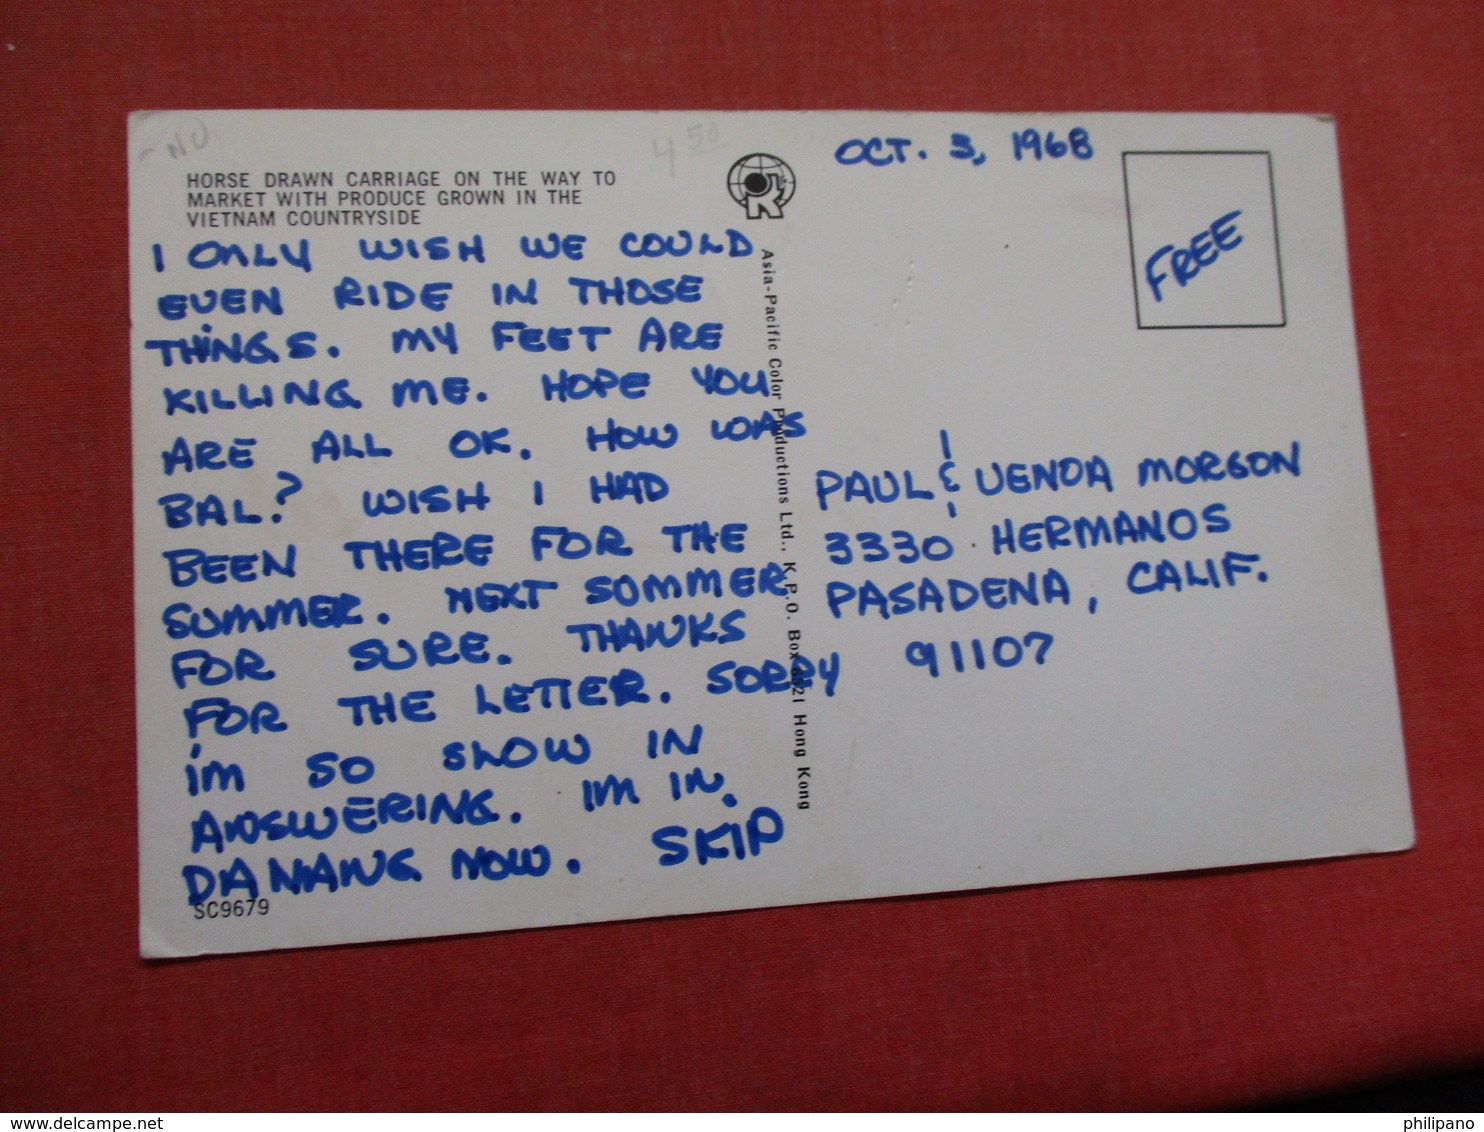 - NU
4 50
HORSE DRAWN CARRIAGE ON THE WAY TO
MARKET WITH PRODUCE GROWN IN THE
VIETNAM COUNTRYSIDE
I ONLY WISH WE COULD
EVEN RIDE IN THOSE
THINGS. MY FEET ARE
KILLING ME. HOPE YOU
ARE ALL OK. HOW WAS
BAL? WISH I HAD
BEEN THERE FOR THE
SUMMER. NEXT SOMMER
FOR SURE. THANKS
FOR THE LETTER. SORRY
I'M SO SLOW IN
ANSWERING. IM IN
DANANG NOW. SKIP
SC9679
Asia-Pacific Color Productions Ltd., K.P.O. Box 6521 Hong Kong
OCT. 3, 1968
FREE
PAUL & VENDA MORGON
3330 HERMANOS
PASADENA, CALIF.
91107
delcampe.net
philipano